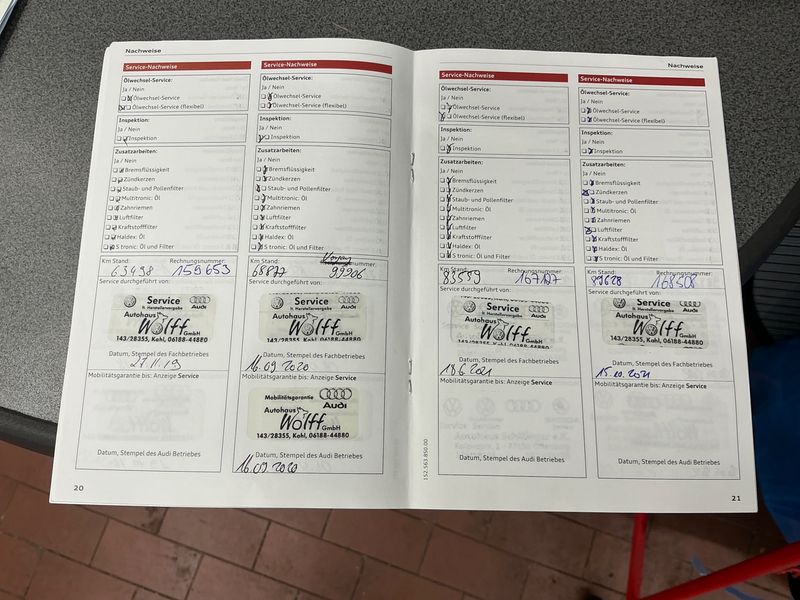 Nachweise
Service-Nachweise
Ölwechsel-Service:
Ja / Nein
Ölwechsel-Service
Ölwechsel-Service (flexibel)
Inspektion:
Ja / Nein
Inspektion
Zusatzarbeiten:
Ja / Nein
Bremsflüssigkeit
Zündkerzen
Staub- und Pollenfilter
Multitronic: Öl
Zahnriemen
Luftfilter
Kraftstofffilter
Haldex: Öl
S tronic: Öl und Filter
Km Stand: Rechnungsnummer:
63498 159653
Service durchgeführt von:
Service Audi
lt. Herstellervorgabe
Autohaus
Wolff GmbH
143/28355, Kahl, 06188-44880
Datum, Stempel des Fachbetriebes
27.11.19
Mobilitätsgarantie bis: Anzeige Service
Datum, Stempel des Audi Betriebes
20
Service-Nachweise
Ölwechsel-Service:
Ja / Nein
Ölwechsel-Service
Ölwechsel-Service (flexibel)
Inspektion:
Ja / Nein
Inspektion
Zusatzarbeiten:
Ja / Nein
Bremsflüssigkeit
Zündkerzen
Staub- und Pollenfilter
Multitronic: Öl
Zahnriemen
Luftfilter
Kraftstofffilter
Haldex: Öl
S tronic: Öl und Filter
Km Stand: nummer:
68877 99906
Service durchgeführt von:
Service Audi
lt. Herstellervorgabe
Autohaus
Wolff GmbH
143/28355, Kahl, 06188-44880
Datum, Stempel des Fachbetriebes
16.09.2020
Mobilitätsgarantie bis: Anzeige Service
Mobilitätsgarantie Audi
Autohaus
Wolff GmbH
143/28355, Kahl, 06188-44880
Datum, Stempel des Audi Betriebes
16.09.2020
Nachweise
Service-Nachweise
Ölwechsel-Service:
Ja / Nein
Ölwechsel-Service
Ölwechsel-Service (flexibel)
Inspektion:
Ja / Nein
Inspektion
Zusatzarbeiten:
Ja / Nein
Bremsflüssigkeit
Zündkerzen
Staub- und Pollenfilter
Multitronic: Öl
Zahnriemen
Luftfilter
Kraftstofffilter
Haldex: Öl
S tronic: Öl und Filter
Km Stand: Rechnungsnummer:
83539
Service durchgeführt von:
Service Audi
lt. Herstellervorgabe
Autohaus
Wolff GmbH
143/28355, Kahl, 06188-44880
Datum, Stempel des Fachbetriebes
18.6.2021
Mobilitätsgarantie bis: Anzeige Service
Datum, Stempel des Audi Betriebes
152.563.850.00
Service-Nachweise
Ölwechsel-Service:
Ja / Nein
Ölwechsel-Service
Ölwechsel-Service (flexibel)
Inspektion:
Ja / Nein
Inspektion
Zusatzarbeiten:
Ja / Nein
Bremsflüssigkeit
Zündkerzen
Staub- und Pollenfilter
Multitronic: Öl
Zahnriemen
Luftfilter
Kraftstofffilter
Haldex: Öl
S tronic: Öl und Filter
Km Stand: Rechnungsnummer:
89628 168508
Service durchgeführt von:
Service Audi
lt. Herstellervorgabe
Autohaus
Wolff GmbH
143/28355, Kahl, 06188-44880
Datum, Stempel des Fachbetriebes
15.10.2021
Mobilitätsgarantie bis: Anzeige Service
Datum, Stempel des Audi Betriebes
21